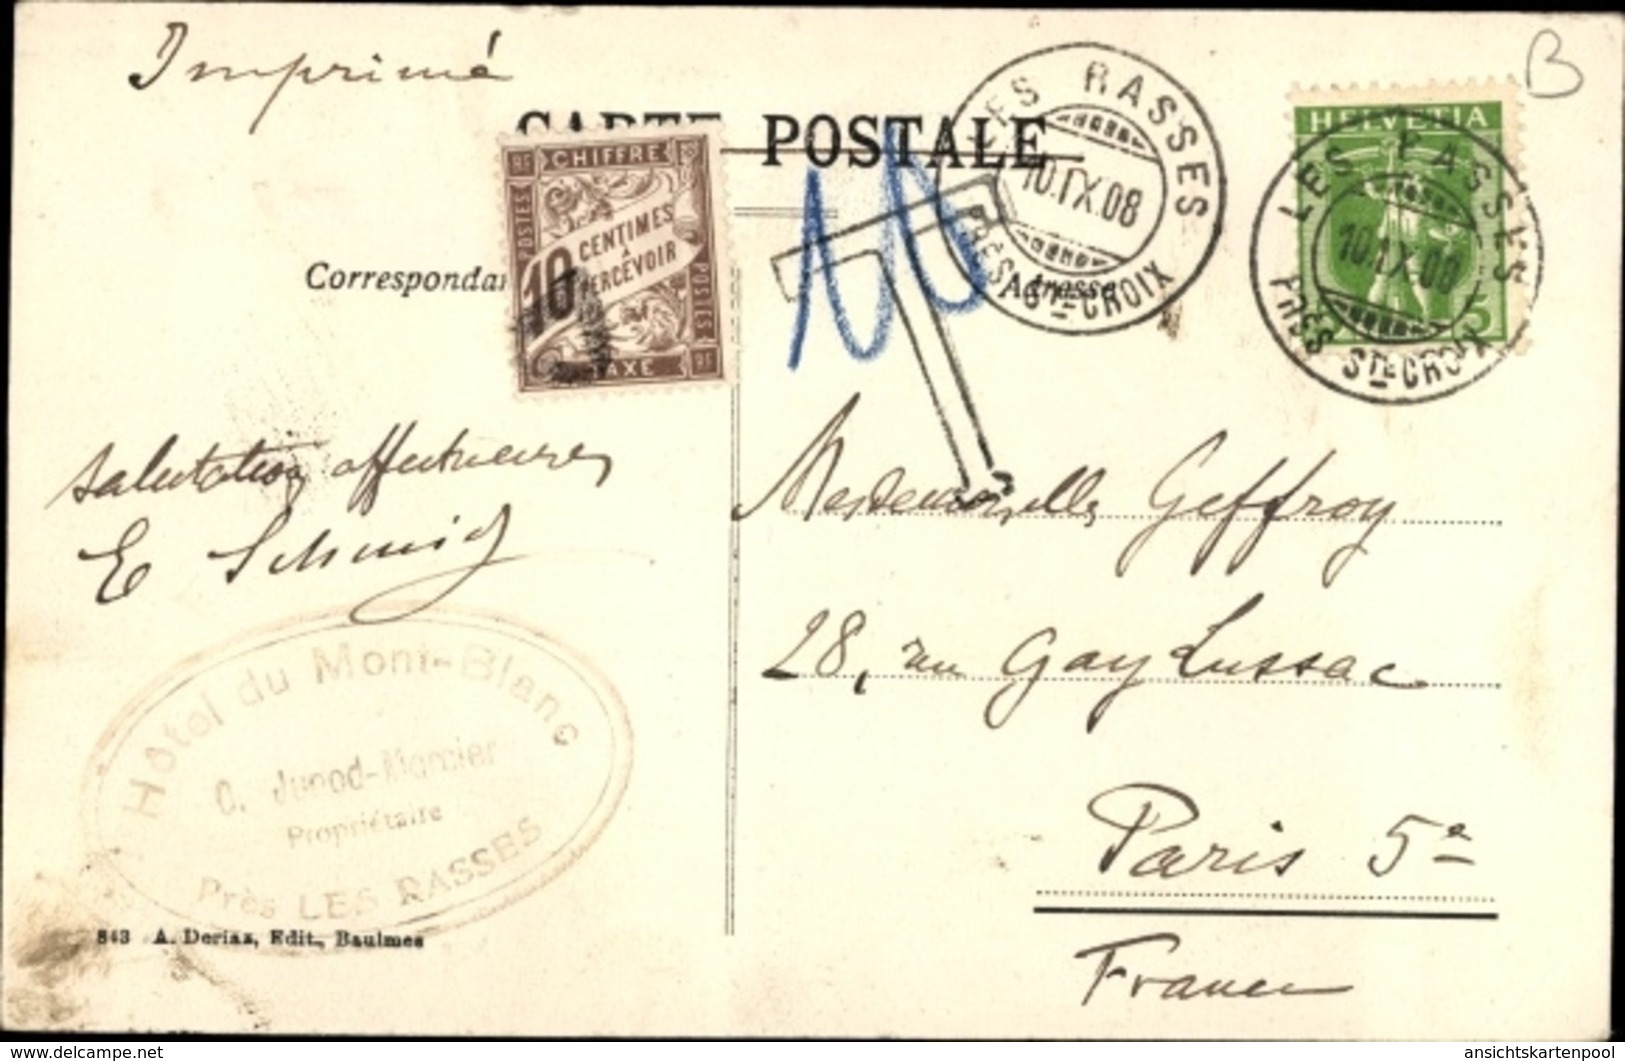 Imprimé
B
CARTE POSTALE
LES RASSES
10.IX.08
PRÈS STE CROIX
HELVETIA
5
LES RASSES
10.IX.08
PRÈS STE CROIX
RF CHIFFRE RF
POSTES
10 CENTIMES
À
PERCEVOIR
POSTES
TAXE RF
10
T
Correspondan
Adresse
salutation affectueuses
E Schmid
Mademoiselle Geffroy
28, rue Gay Lussac
Paris 5e
France
Hôtel du Mont-Blanc
O. Junod-Mermier
Propriétaire
Près LES RASSES
843 A. Deriaz, Edit., Baulmes
delcampe.net
ansichtskartenpool